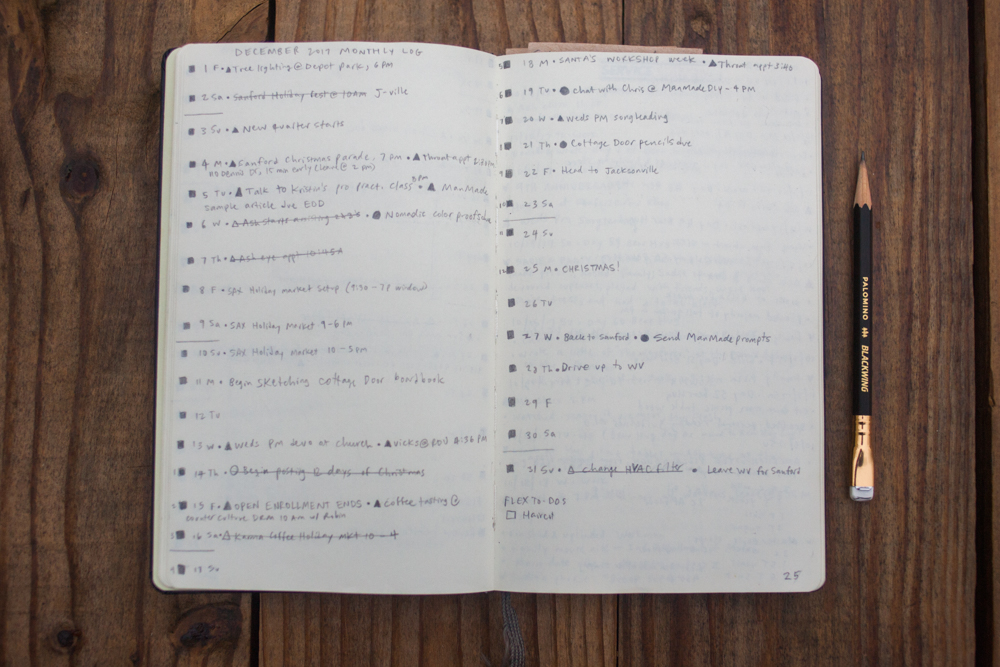 DECEMBER 2017 MONTHLY LOG
1 F • ▲ Tree lighting @ Depot Park, 6 pm
2 Sa • Sanford Holiday fest @ 10am J-ville
3 Su • ▲ New quarter starts
4 M • ▲ Sanford Christmas parade, 7 pm • ▲ Throat appt
no Dennis D's, 15 min early (leave @ 2 pm)
5 Tu • ▲ Talk to Kristin's pro pract. class 8pm • ▲ ManMade
sample article due EOD
6 W • ▲ Ash starts • ● Nomadic color proofs due
7 Th • ▲ Ash eye appt 10:45A
8 F • SRX Holiday market setup (9:30 - 7P window)
9 Sa • SRX Holiday Market 9-6 pm
10 Su • SRX Holiday market 10-5pm
11 M • Begin sketching Cottage Door boardbook
12 Tu
13 W • ▲ Weds PM devo at church • ▲ Vicks @ RDU
14 Th • Begin posting 12 days of Christmas
15 F • ▲ OPEN ENROLLMENT ENDS • ▲ Coffee tasting @
Counter Culture Durham 10 am w/ Robin
16 Sa • ▲ Holiday mkt 10 - 4
4 17 Su
18 M • SANTA'S WORKSHOP WEEK • ▲ Throat appt 3:40
19 Tu • ● Chat with Chris @ ManMade DIY - 4 PM
20 W • ▲ Weds PM songleading
21 Th • ● Cottage Door pencils due
22 F • Head to Jacksonville
23 Sa
24 Su
25 M • CHRISTMAS!
26 Tu
27 W • Back to Sanford • ● Send ManMade prompts
28 Th • Drive up to WV
29 F
30 Sa
31 Su • ▲ change HVAC filter • Leave WV for Sanford
FLEX TO-DOS
□ Harvest
25
PALOMINO BLACKWING